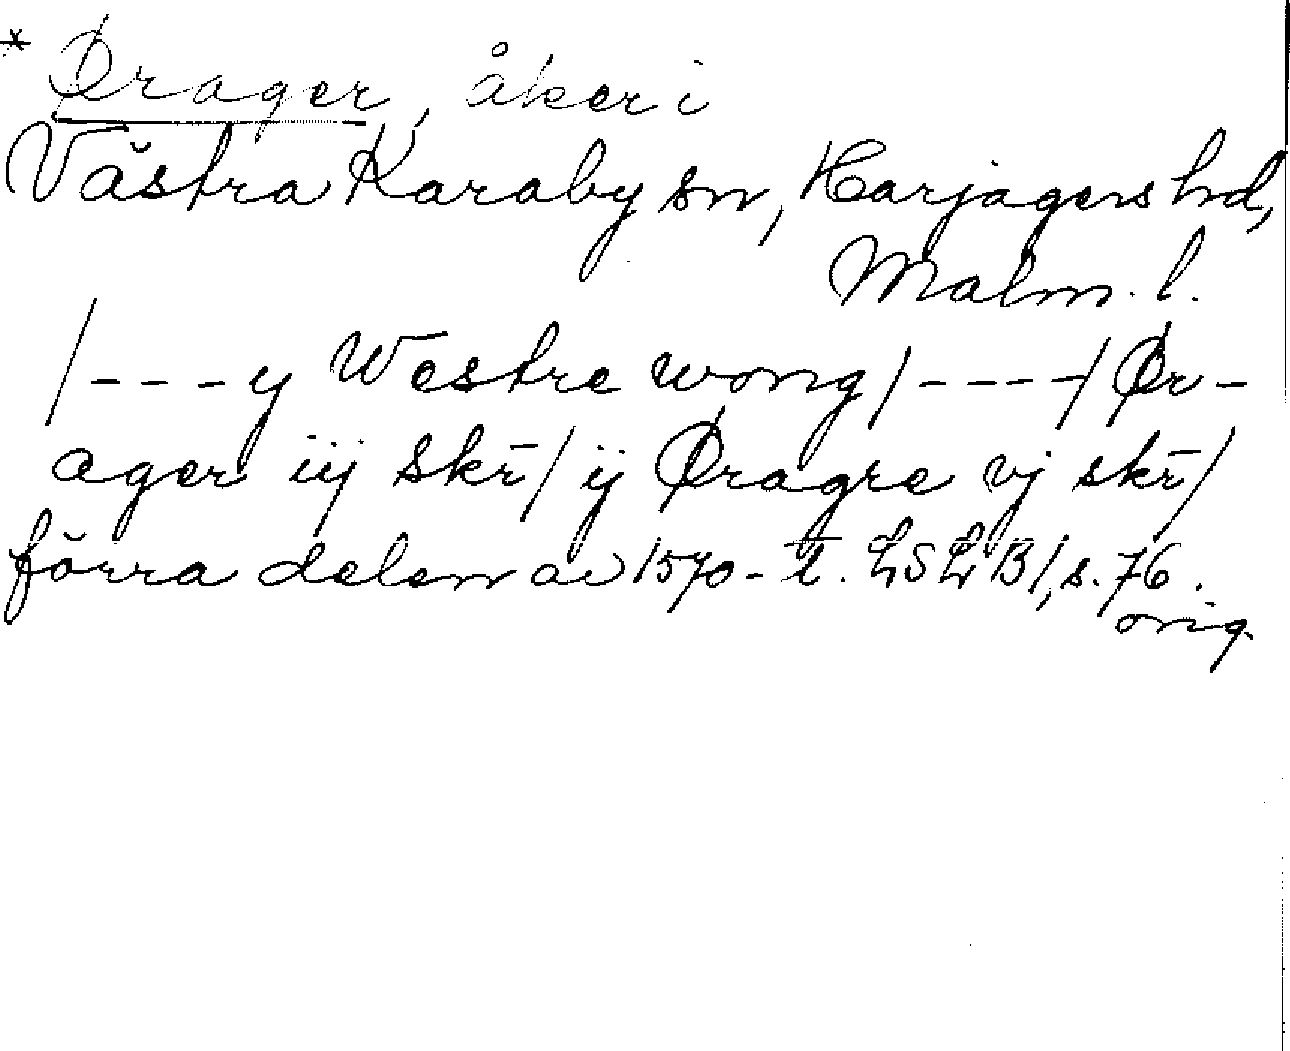 * Ørager, åker i
Västra Karaby sn, Harjagers hd,
Malm. l.
/---y Westre wong/----/Ør-
ager iij skr̄/ij Øragre vj skr̄/
förra delen av 1570-t. LSLB1, s. 76.
orig.